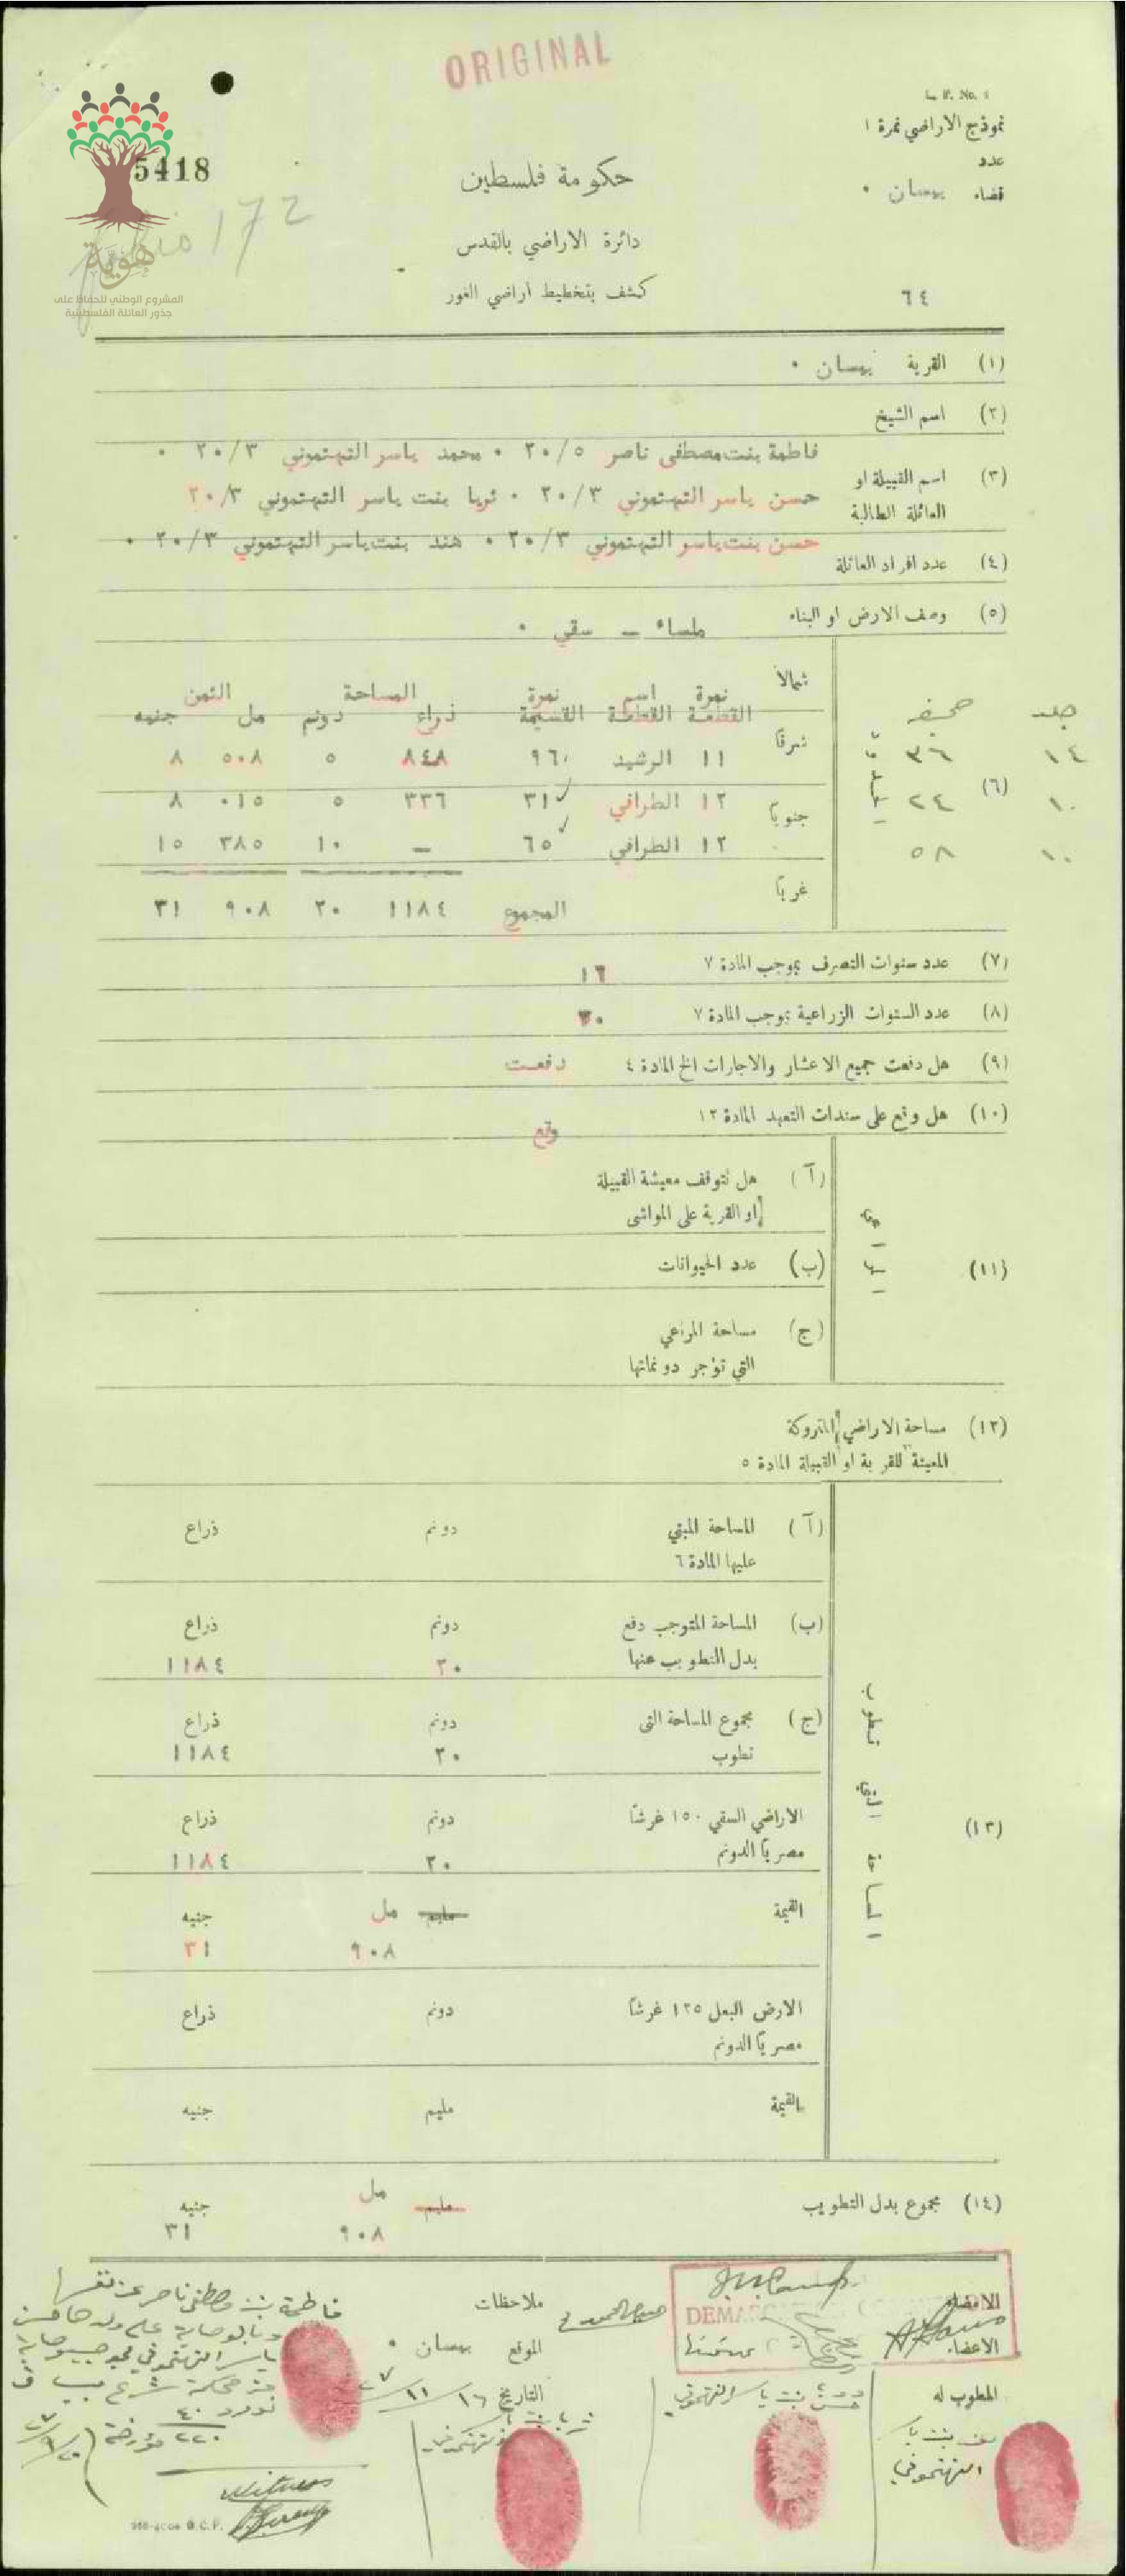 ORIGINAL
نموذج الاراضي نمرة ١
عدد
5418
حكومة فلسطين
قضاء بيسان •
172
دائرة الاراضي بالقدس
هوية
المشروع الوطني للحفاظ على
جذور العائلة الفلسطينية
كشف بتخطيط اراضي الغور
٦٤
(١) القرية بيسان •
(٢) اسم الشيخ
فاطمة بنت مصطفى ناصر ٢٠/٥ • محمد ياسر التهتموني ٢٠/٣ •
(٣) اسم القبيلة او
العائلة الطالبة
حسن ياسر التهتموني ٢٠/٣ • ثريا بنت ياسر التهتموني ٢٠/٣
حسن بنت ياسر التهتموني ٢٠/٣ • هند بنت ياسر التهتموني ٢٠/٣ •
(٤) عدد افراد العائلة
(٥) وصف الارض او البناء ملساء – سقي •
(٦)
شمالاً
شرقاً
جنوباً
غرباً
جلد صحيفه
١٤ ٣٦
١٠ ٢٤
١٠ ٥٨
نمرة اسم نمرة المساحة الثمن
القطعة القطعة القسيمة ذراع دونم مل جنيه
١١ الرشيد ٩٦ ٨٤٨ ٥ ٥٠٨ ٨
١٢ الطرافي ٣١ ٣٣٦ ٥ ٠١٥ ٨
١٢ الطرافي ٦٥ – ١٠ ٣٨٥ ١٥
المجموع ١١٨٤ ٢٠ ٩٠٨ ٣١
(٧) عدد سنوات التصرف بموجب المادة ٧ ١٦
(٨) عدد السنوات الزراعية بموجب المادة ٧
(٩) هل دفعت جميع الاعشار والاجارات الخ المادة ٤ دفعت
(١٠) هل وقع على سندات التعهد المادة ١٢ وقع
(١١) المراعي
(آ) هل تتوقف معيشة القبيلة
او القرية على المواشي
(ب) عدد الحيوانات
(ج) مساحة المراعي
التي تؤجر دونماتها
(١٢) مساحة الاراضي المتروكة
المعينة للقرية او القبيلة المادة ٥
(١٣) المساحة التي تطوب
(آ) المساحة المبني دونم ذراع
عليها المادة ٦
(ب) المساحة المتوجب دفع دونم ذراع
بدل التطويب عنها ٢٠ ١١٨٤
(ج) مجموع المساحة التى دونم ذراع
تطوب ٢٠ ١١٨٤
الاراضي السقي ١٥٠ غرشاً دونم ذراع
مصرياً الدونم ٢٠ ١١٨٤
القيمة مليم مل جنيه
٩٠٨ ٣١
الارض البعل ١٢٥ غرشاً دونم ذراع
مصرياً الدونم
القيمة مليم جنيه
(١٤) مجموع بدل التطويب مليم مل جنيه
٩٠٨ ٣١
الامضاء
الاعضاء
ملاحظات
الموقع بيسان •
التاريخ ١٦/١١/٢٧
المطوب له
فاطمة بنت مصطفى ناصر عن نفسها
Witness